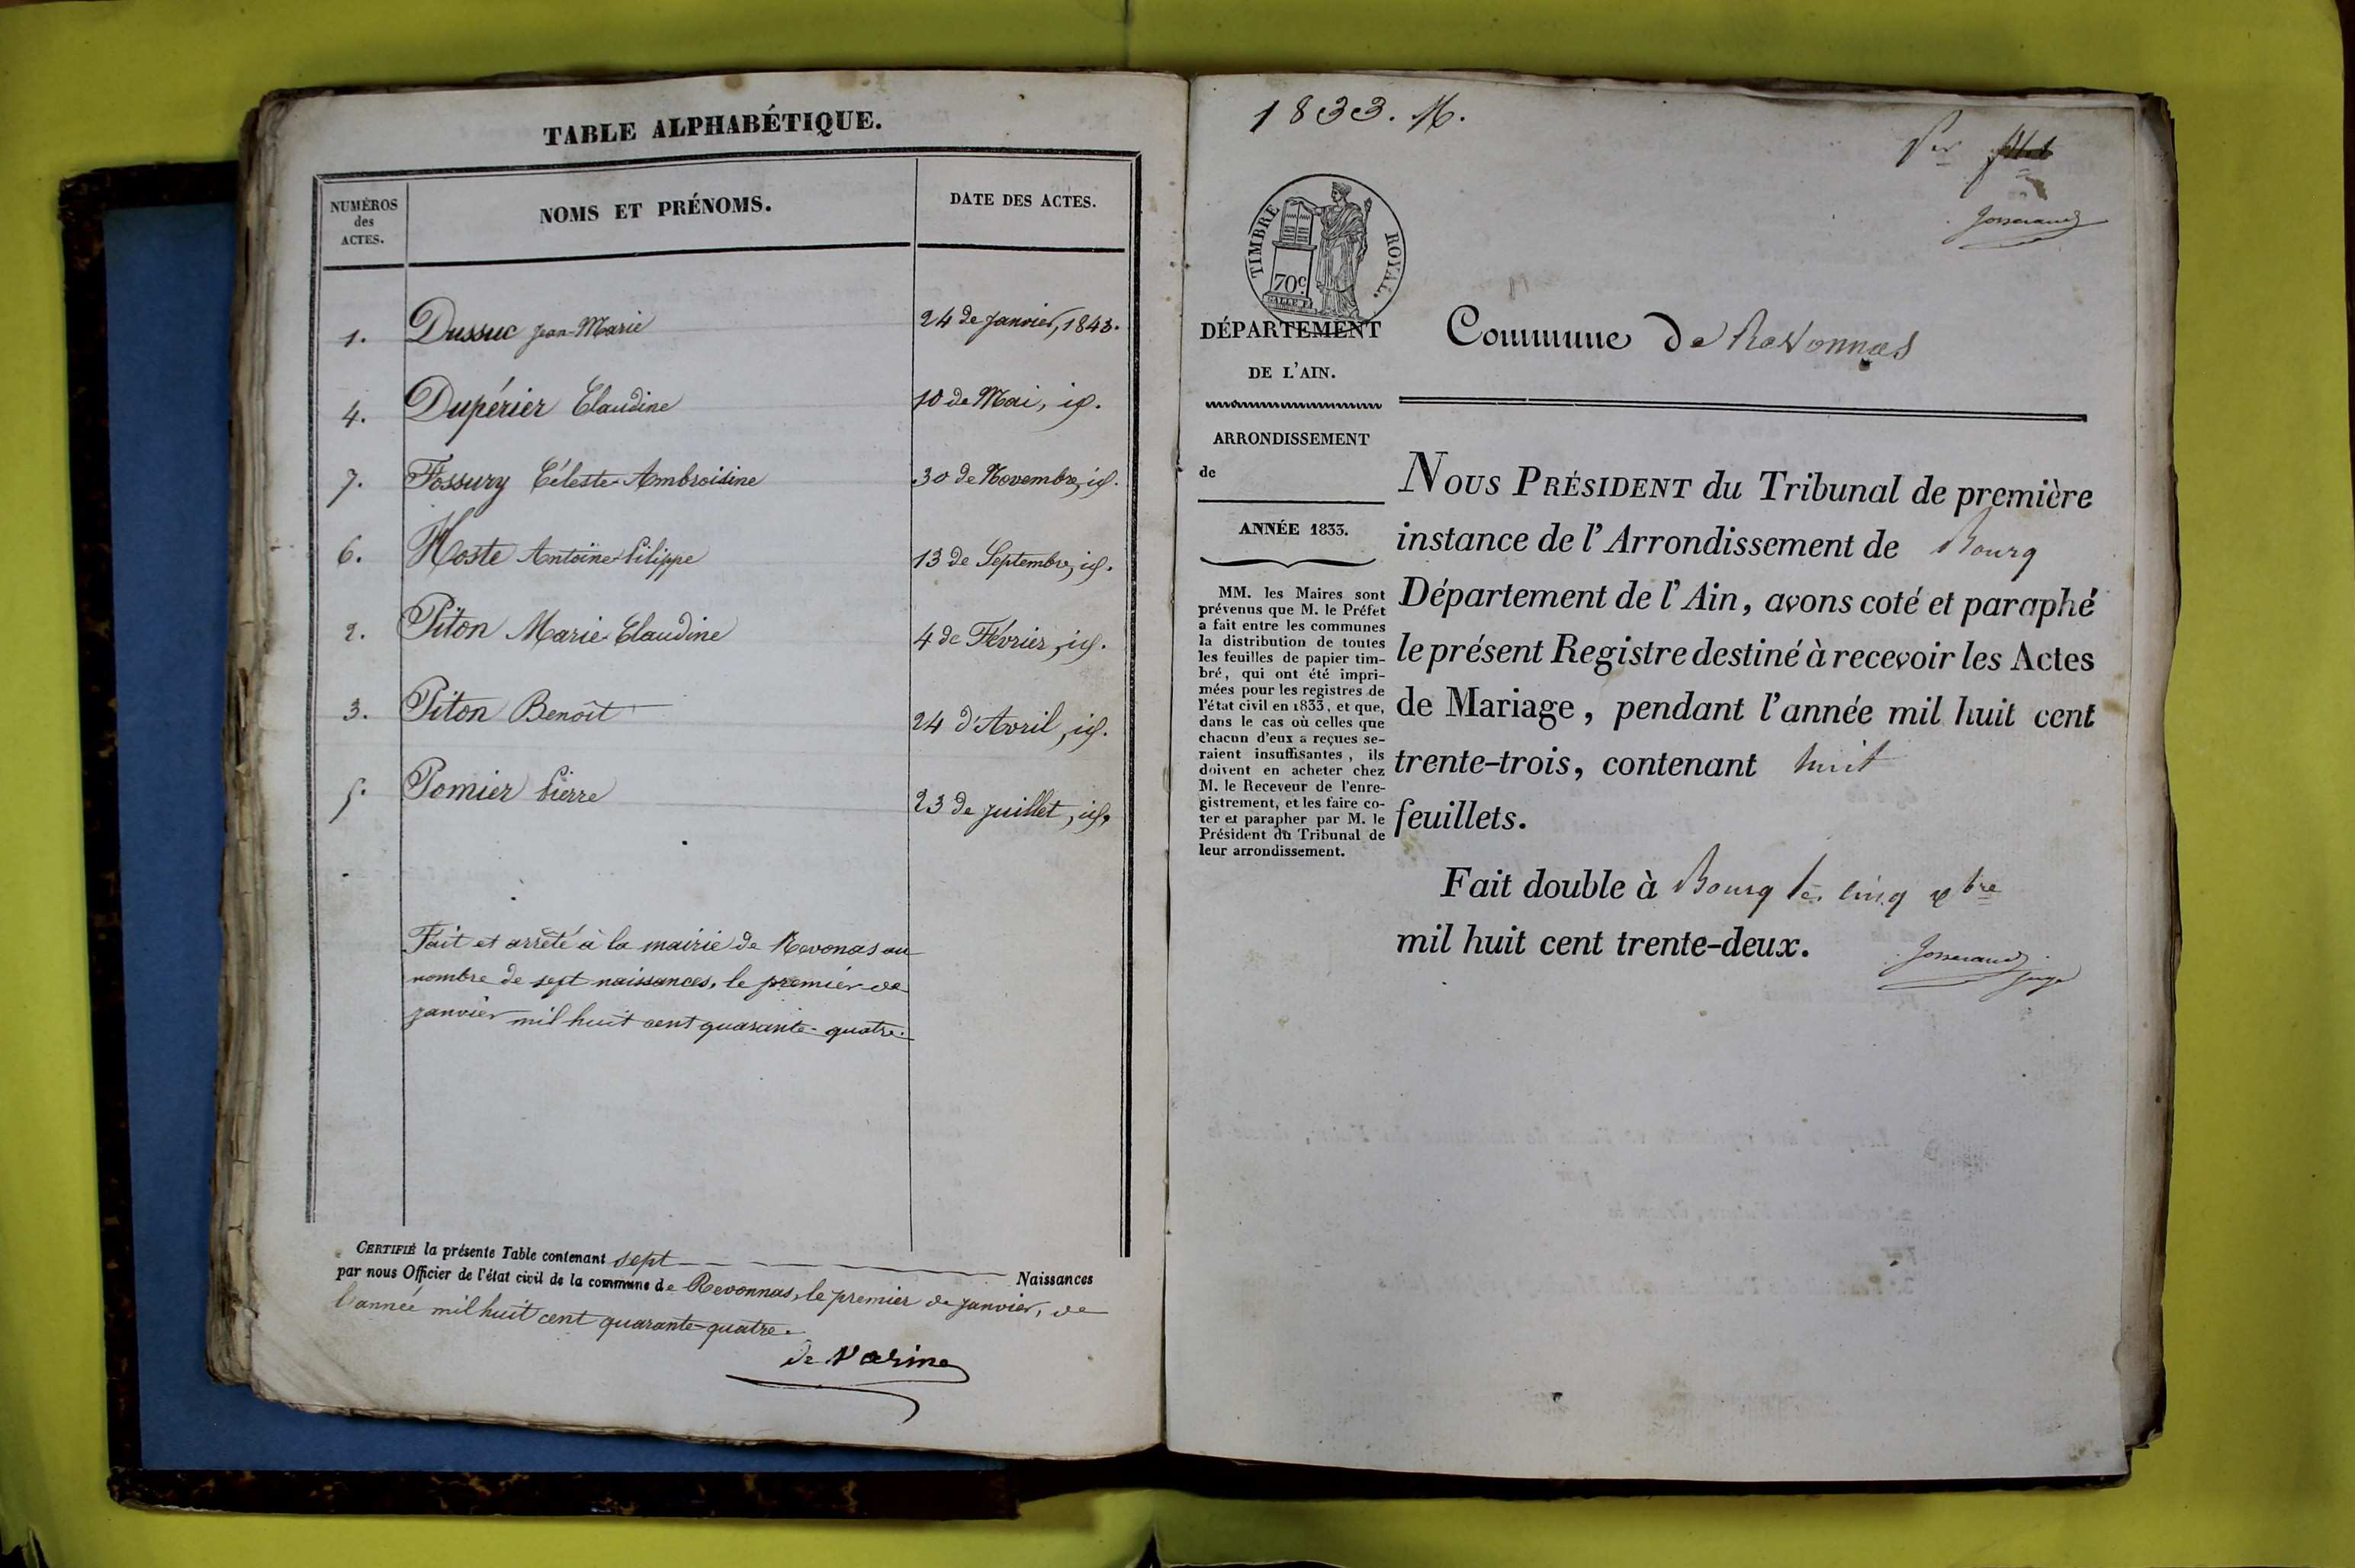 TABLE ALPHABÉTIQUE.
NUMÉROS des ACTES.
NOMS ET PRÉNOMS.
DATE DES ACTES.
1. Dussuc Jean-Marie 24 de Janvier, 1843.
4. Dupérier Claudine 10 de Mai, id.
7. Fossury Céleste-Ambroisine 30 de Novembre, id.
6. Hoste Antoine-Pilippe 13 de Septembre, id.
2. Piton Marie-Claudine 4 de Février, id.
3. Piton Benoît 24 d'Avril, id.
5. Pomier Pierre 23 de juillet, id.
Fait et arrêté à la mairie de Revonas au
nombre de sept naissances, le premier de
janvier mil huit cent quarante-quatre.
CERTIFIÉ la présente Table contenant sept Naissances
par nous Officier de l'état civil de la commune de Revonnas, le premier de janvier, de
l'année mil huit cent quarante-quatre.
de Varine
1833. M.
Per
Josserand
TIMBRE ROYAL.
70c.
DÉPARTEMENT
DE L'AIN.
ARRONDISSEMENT
de
ANNÉE 1833.
MM. les Maires sont
prévenus que M. le Préfet
a fait entre les communes
la distribution de toutes
les feuilles de papier tim-
bré, qui ont été impri-
mées pour les registres de
l'état civil en 1833, et que,
dans le cas où celles que
chacun d'eux a reçues se-
raient insuffisantes, ils
doivent en acheter chez
M. le Receveur de l'enre-
gistrement, et les faire co-
ter et parapher par M. le
Président du Tribunal de
leur arrondissement.
Commune de Revonnas
NOUS PRÉSIDENT du Tribunal de première
instance de l'Arrondissement de Bourg
Département de l'Ain, avons coté et paraphé
le présent Registre destiné à recevoir les Actes
de Mariage, pendant l'année mil huit cent
trente-trois, contenant huit
feuillets.
Fait double à Bourg le cinq xbre
mil huit cent trente-deux.
Josserand
juge